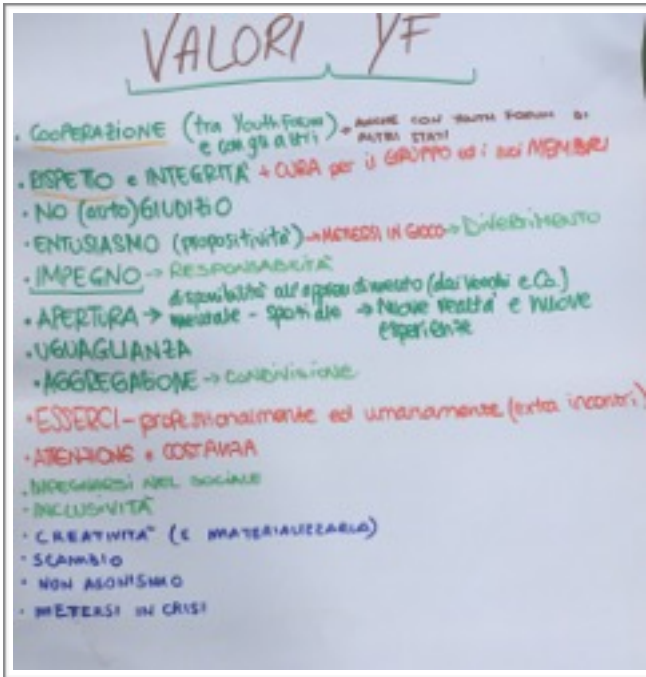 VALORI YF
• COOPERAZIONE (tra Youth Forum e con gli altri) → ANCHE CON YOUTH FORUM DI ALTRI STATI
• RISPETTO e INTEGRITA' + CURA per il GRUPPO ed i suoi MEMBRI
• NO (auto)GIUDIZIO
• ENTUSIASMO (propositività) → METTERSI IN GIOCO → DIVERTIMENTO
• IMPEGNO → RESPONSABILITÀ
• APERTURA → disponibilità all'apprendimento (dai vecchi e Co.)
mentale - spaziale → Nuove realtà e nuove esperienze
• UGUAGLIANZA
• AGGREGAZIONE → CONDIVISIONE
• ESSERCI - professionalmente ed umanamente (extra incontri)
• ATTENZIONE e COSTANZA
• IMPEGNARSI NEL SOCIALE
• INCLUSIVITÀ
• CREATIVITA' (E MATERIALIZZARLA)
• SCAMBIO
• NON AGONISMO
• METTERSI IN CRISI